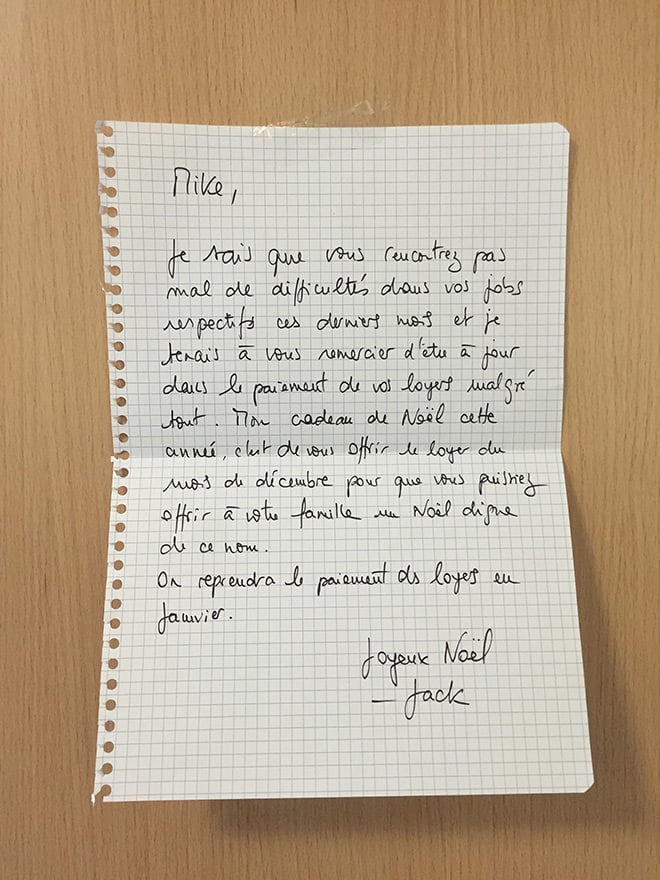 Mike,
Je sais que vous rencontrez pas
mal de difficultés dans vos jobs
respectifs ces derniers mois et je
tenais à vous remercier d'être à jour
dans le paiement de vos loyers malgré
tout. Mon cadeau de Noël cette
année, c'est de vous offrir le loyer du
mois de décembre pour que vous puissiez
offrir à votre famille un Noël digne
de ce nom.
On reprendra le paiement ds loyers en
Janvier.
Joyeux Noël
— Jack